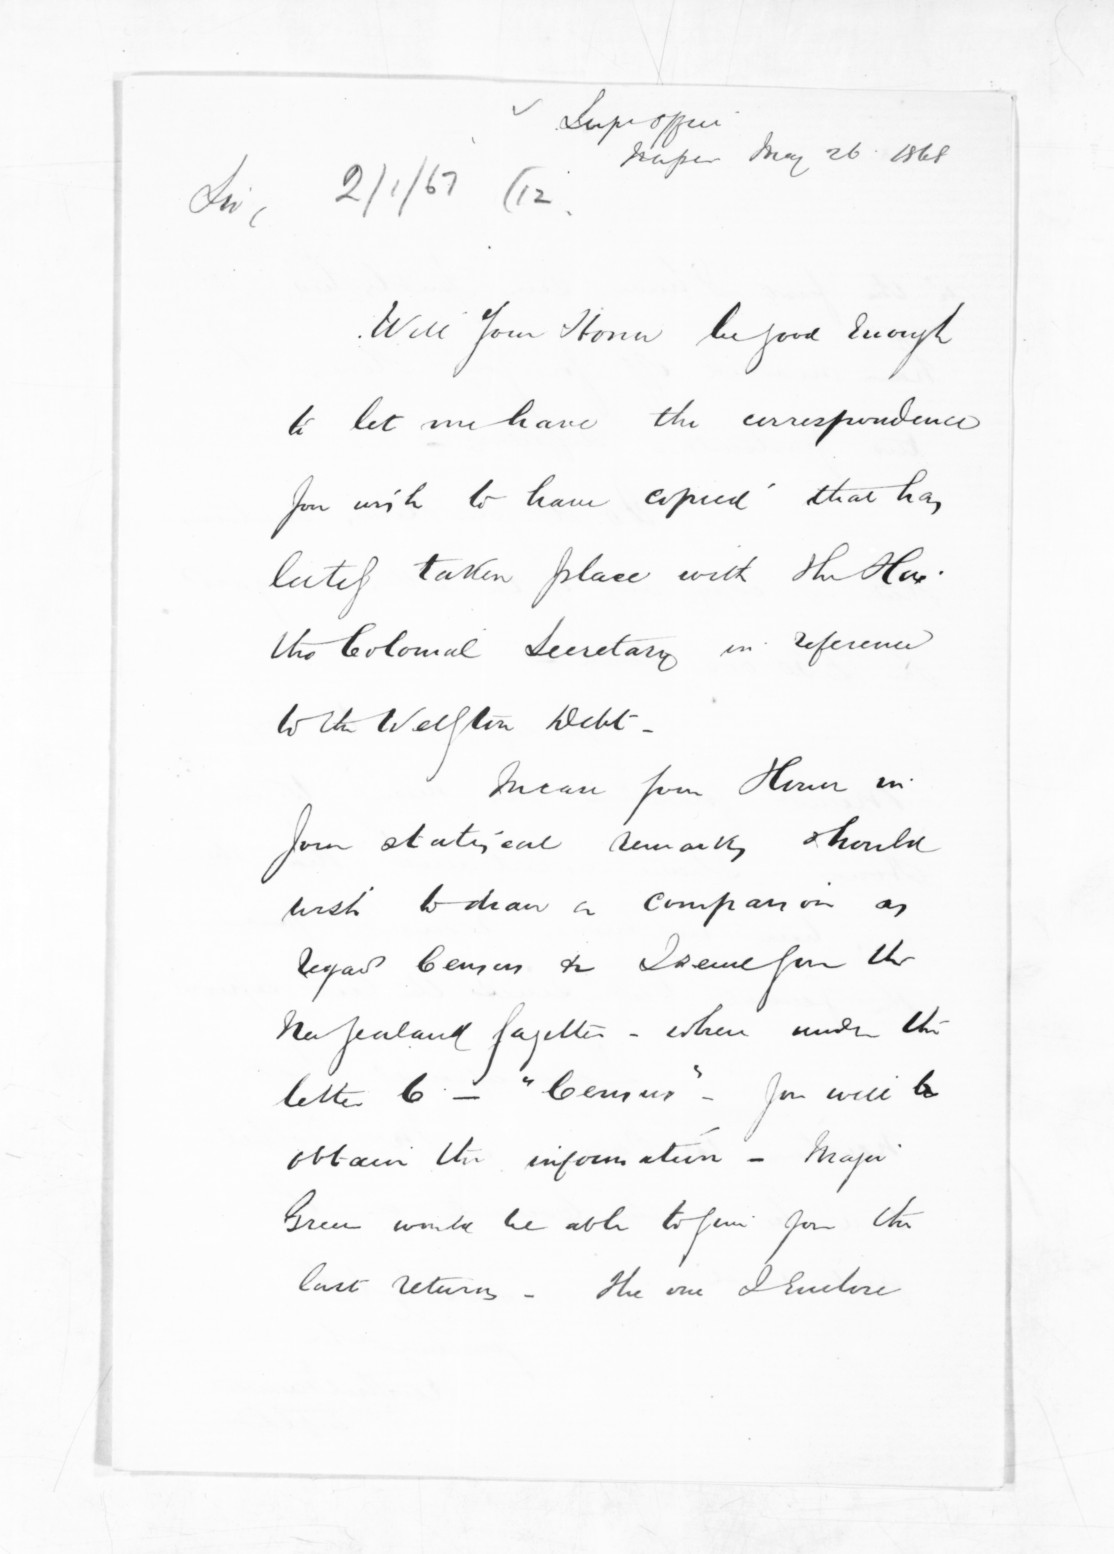 Sup. Office
Napier May 26 1868
Sir, 2/1/67 (12.
Will Your Honor be good Enough
to let me have the correspondence
you wish to have copied that has
lately taken place with the Hon.
the Colonial Secretary in reference
to the Welgton Debt -
In case your Honor in
your statistical remarks should
wish to draw a comparison as
regard Census &
the
New Zealand Gazette - where under the
letter C - "Census" - you will be
obtain the information - Major
Green would be able to give you the
last returns - The one I Enclose